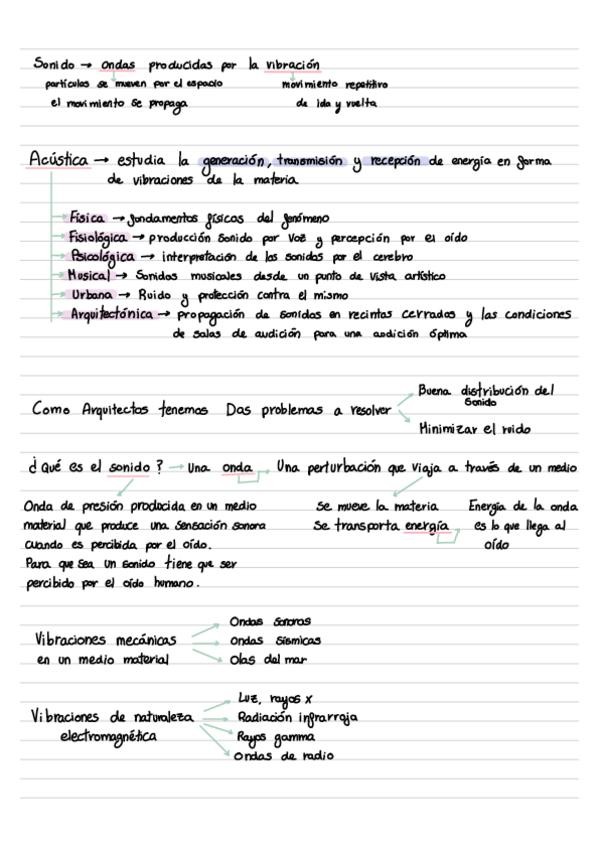 Sonido → ondas producidas por la vibración
partículas se mueven por el espacio
movimiento repetitivo
el movimiento se propaga
de ida y vuelta
Acústica → estudia la generación, transmisión y recepción de energía en forma
de vibraciones de la materia
Física → fundamentos físicos del fenómeno
Fisiológica → producción sonido por voz y percepción por el oído
Psicológica → interpretación de los sonidos por el cerebro
Musical → Sonidos musicales desde un punto de vista artístico
Urbana → Ruido y protección contra el mismo
Arquitectónica → propagación de sonidos en recintos cerrados y las condiciones
de salas de audición para una audición óptima
Como Arquitectos tenemos Dos problemas a resolver
Buena distribución del
sonido
Minimizar el ruido
¿Qué es el sonido? → Una onda Una perturbación que viaja a través de un medio
Onda de presión producida en un medio
material que produce una sensación sonora
cuando es percibida por el oído.
Para que sea un sonido tiene que ser
percibido por el oído humano.
Se mueve la materia
Se transporta energía
Energía de la onda
es lo que llega al
oído
Vibraciones mecánicas
en un medio material
Ondas sonoras
Ondas sísmicas
Olas del mar
Vibraciones de naturaleza
electromagnética
Luz, rayos x
Radiación infrarroja
Rayos gamma
Ondas de radio